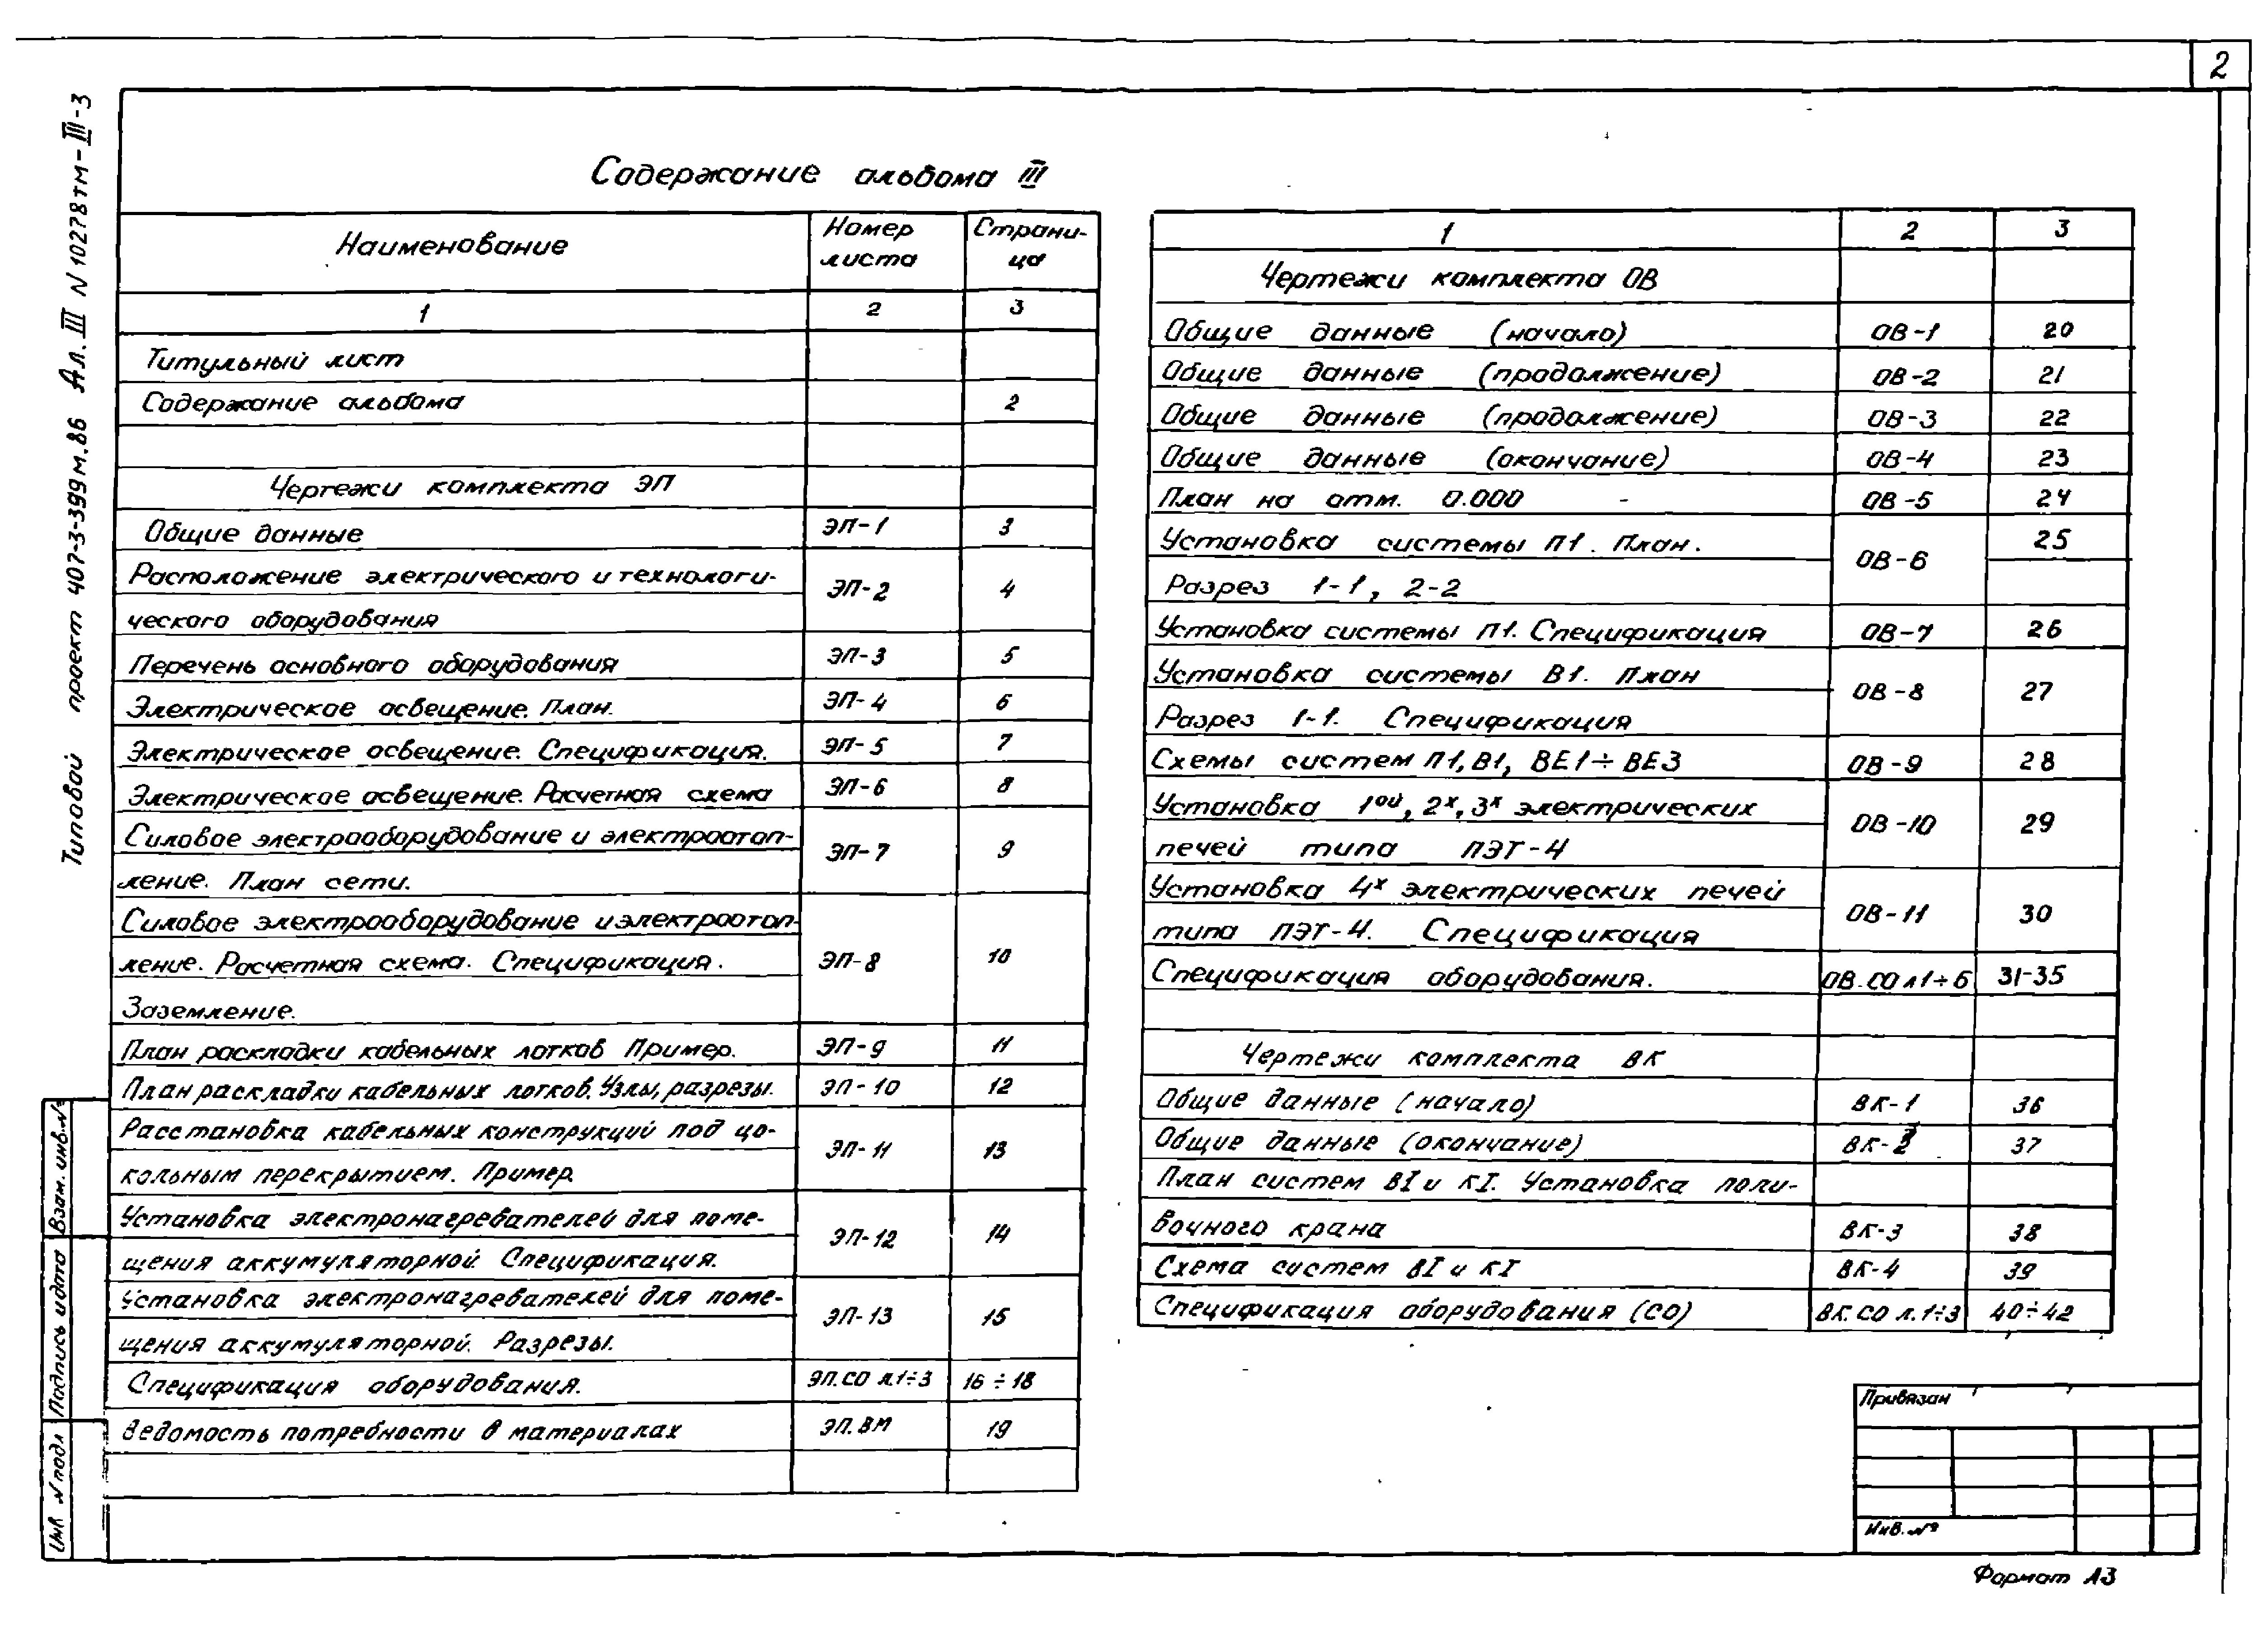 2
Типовой проект 407-3-399м.86 Ал. III N 10278тм-III-3
Содержание альбома III
Наименование
Номер
листа
Страни-
ца
1 2 3
Титульный лист
Содержание альбома 2
Чертежи комплекта ЭП
Общие данные ЭП-1 3
Расположение электрического и технологи-
ческого оборудования ЭП-2 4
Перечень основного оборудования ЭП-3 5
Электрическое освещение. План. ЭП-4 6
Электрическое освещение. Спецификация. ЭП-5 7
Электрическое освещение. Расчетная схема ЭП-6 8
Силовое электрооборудование и электроотоп-
ление. План сети. ЭП-7 9
Силовое электрооборудование и электроотоп-
ление. Расчетная схема. Спецификация. ЭП-8 10
Заземление.
План раскладки кабельных лотков Пример. ЭП-9 11
План раскладки кабельных лотков. Узлы, разрезы. ЭП-10 12
Расстановка кабельных конструкций под цо-
кольным перекрытием. Пример. ЭП-11 13
Установка электронагревателей для поме-
щения аккумуляторной. Спецификация. ЭП-12 14
Установка электронагревателей для поме-
щения аккумуляторной. Разрезы. ЭП-13 15
Спецификация оборудования. ЭП.СО л.1÷3 16÷18
Ведомость потребности в материалах ЭП.ВМ 19
1 2 3
Чертежи комплекта ОВ
Общие данные (начало) ОВ-1 20
Общие данные (продолжение) ОВ-2 21
Общие данные (продолжение) ОВ-3 22
Общие данные (окончание) ОВ-4 23
План на отм. 0.000 ОВ-5 24
Установка системы П1. План. ОВ-6 25
Разрез 1-1, 2-2
Установка системы П1. Спецификация ОВ-7 26
Установка системы В1. План ОВ-8 27
Разрез 1-1. Спецификация
Схемы систем П1, В1, ВЕ1÷ВЕ3 ОВ-9 28
Установка 1ой, 2х, 3х электрических
печей типа ПЭТ-4 ОВ-10 29
Установка 4х электрических печей
типа ПЭТ-4. Спецификация ОВ-11 30
Спецификация оборудования. ОВ.СО л1÷6 31-35
Чертежи комплекта ВК
Общие данные (начало) ВК-1 36
Общие данные (окончание) ВК-2 37
План систем ВI и КI. Установка поли-
вочного крана ВК-3 38
Схема систем ВI и КI ВК-4 39
Спецификация оборудования (СО) ВК.СО л.1÷3 40÷42
Взам. инв.№
Подпись и дата
Инв. N подл
Привязан
Инв.№
Формат А3